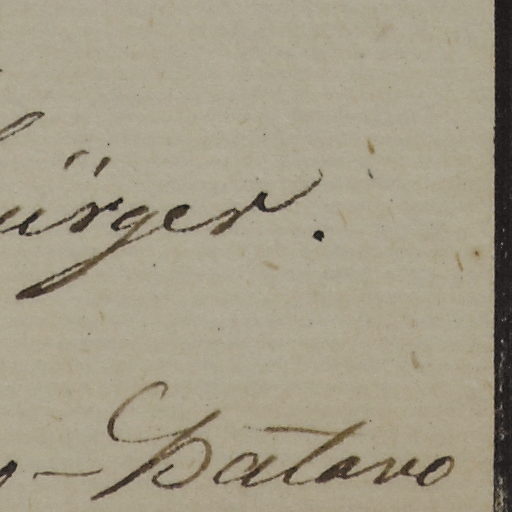 ürger.
-Batavo